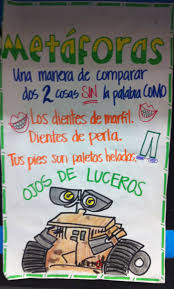 Metáforas
Una manera de comparar
dos 2 cosas SIN la palabra COMO
Los dientes de marfil.
Dientes de perla.
Tus pies son paletas heladas.
OJOS DE LUCEROS